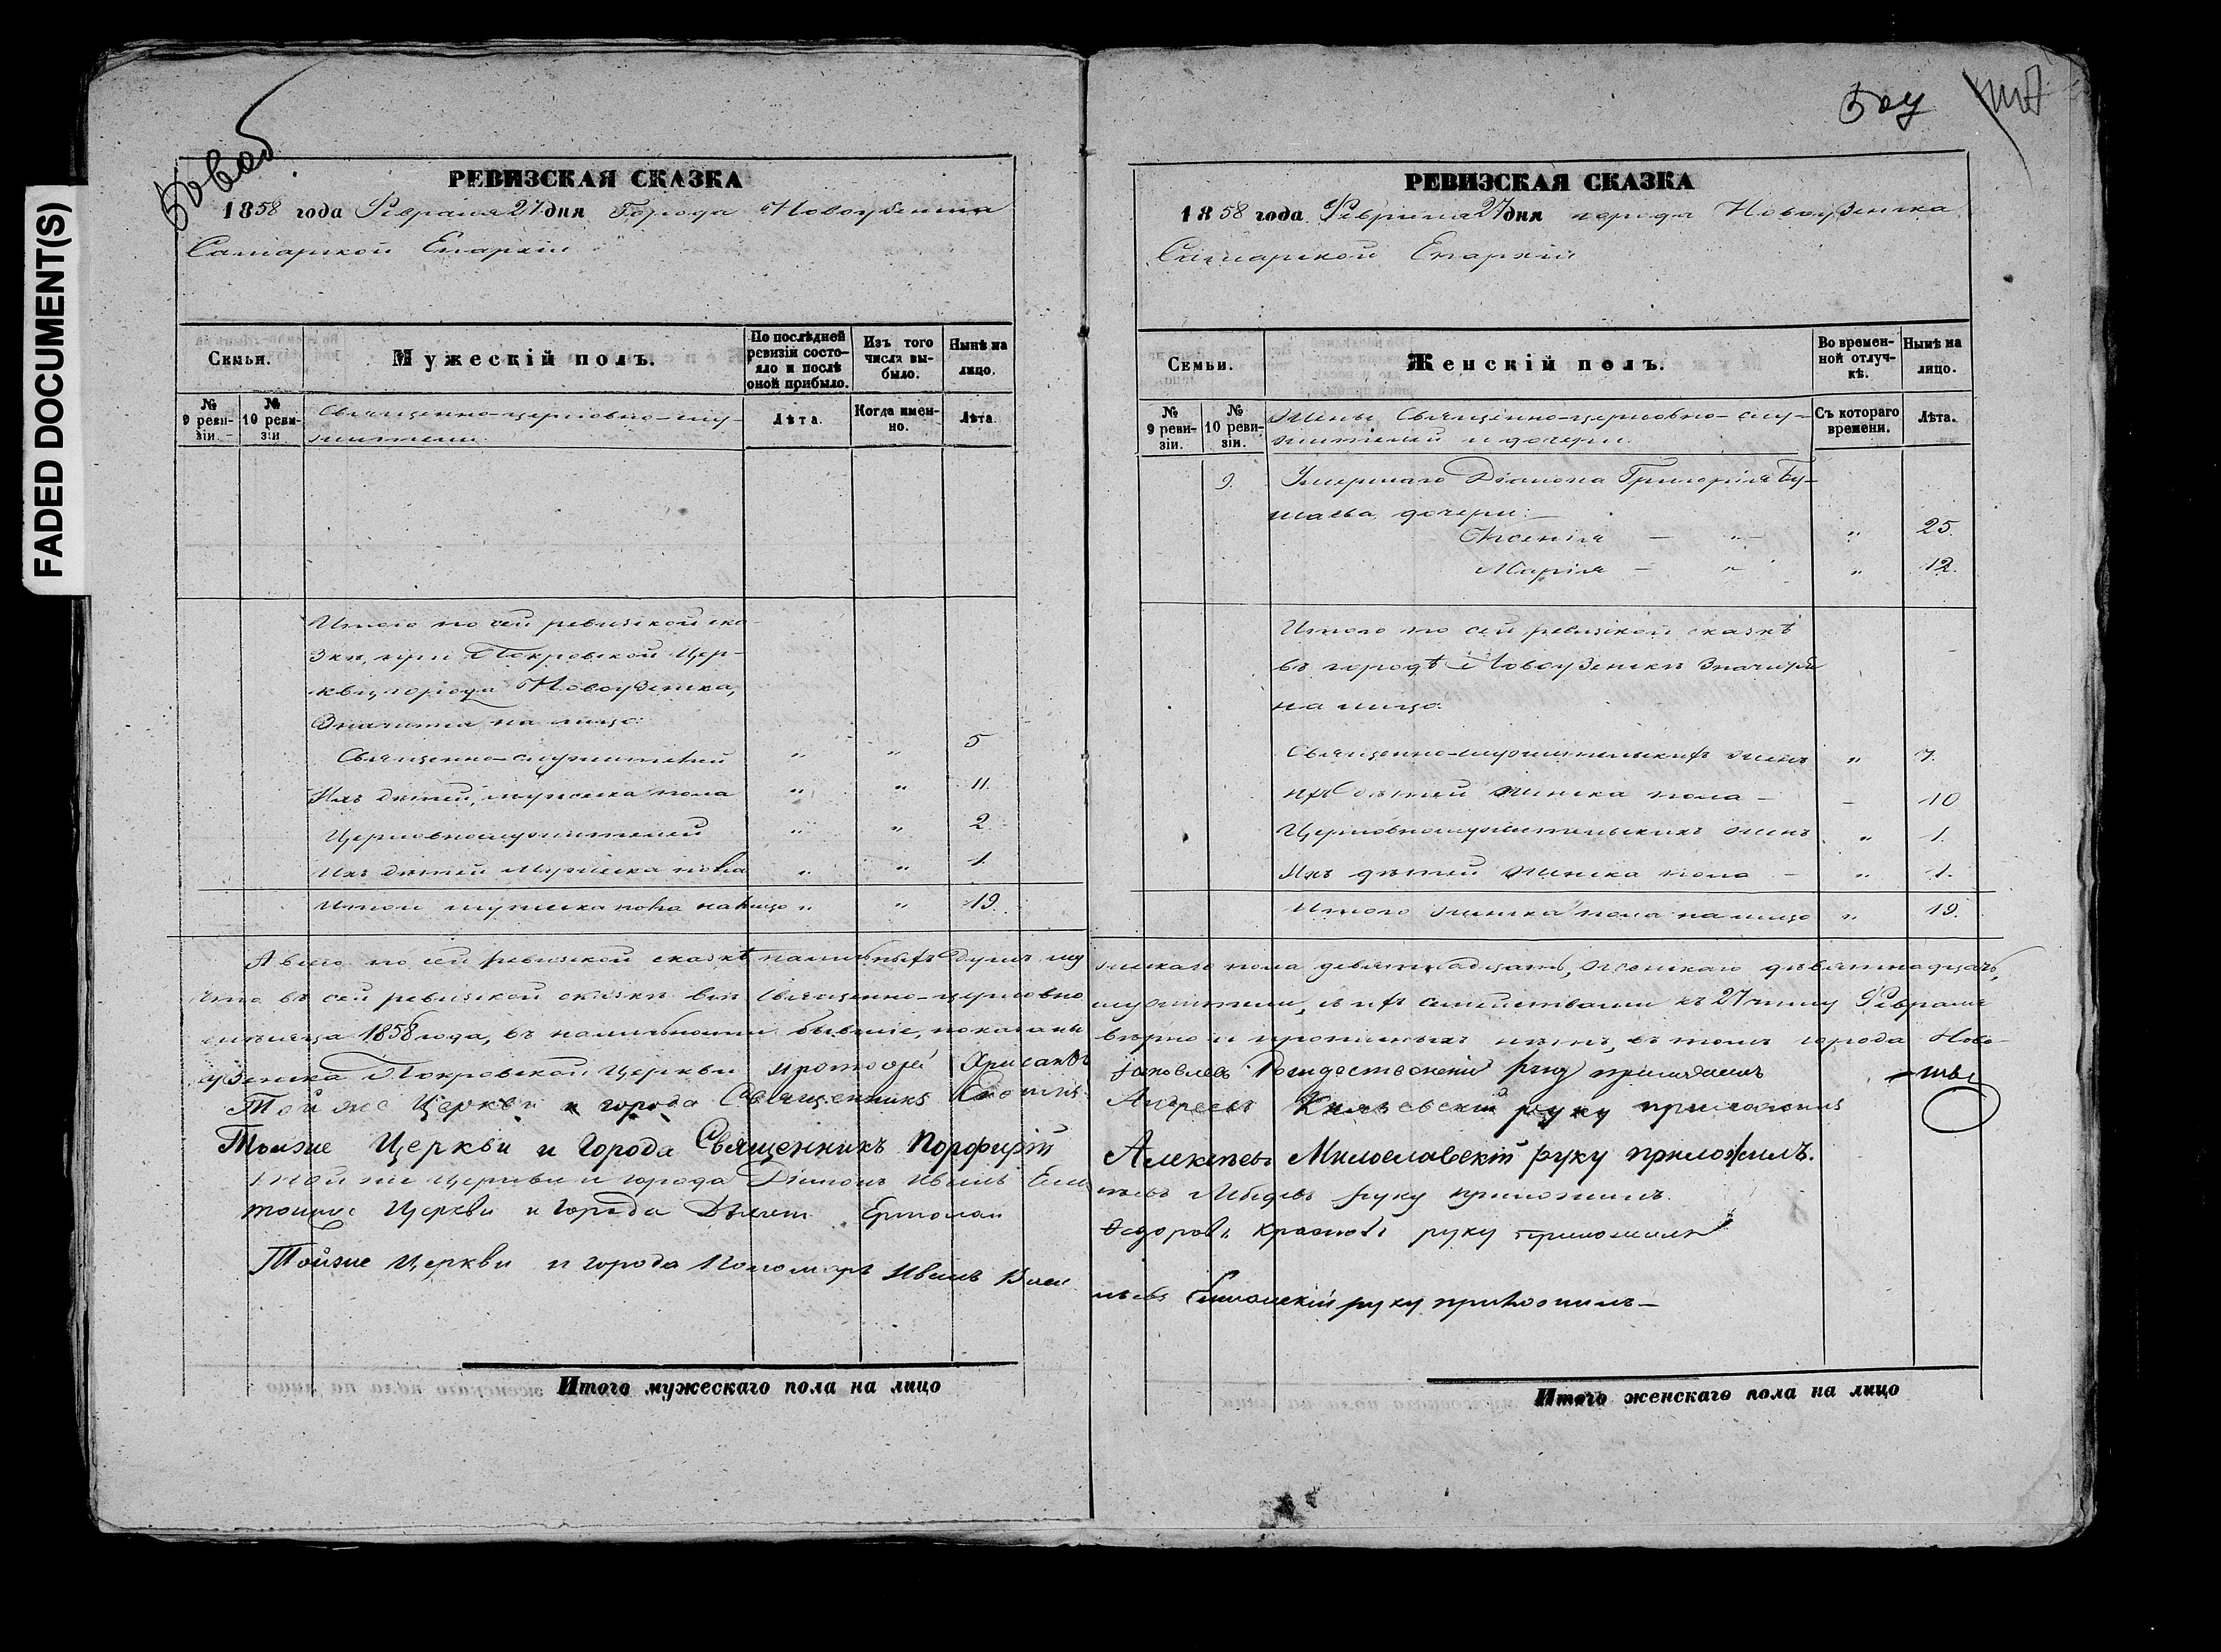 FADED DOCUMENT(S)
РЕВИЗСКАЯ СКАЗКА
1858 года Февраля 27 дня Города Новоузенска
Самарской Епархіи
Семьи.
Мужескій полъ.
По послѣдней ревизіи состояло и послѣ оной прибыло.
Изъ того числа выбыло.
Нынѣ на лицо.
№ 9 ревизіи.
№ 10 ревизіи
Священно-церковно-слу-
жители.
Лѣта.
Когда именно.
Лѣта.
Итого по сей ревизской ска-
зкѣ, при Покровской Цер-
кви, города Новоузенска,
Значится на лицо:
Священно-служителей " " 5
Ихъ дѣтей, мужеска пола " " 11.
Церковнослужителей " " 2
Ихъ дѣтей мужеска пола " " 1.
Итого мужеска пола на лицо " " 19.
РЕВИЗСКАЯ СКАЗКА
1858 года Февраля 27 дня города Новоузенска
Самарской Епархіи
Семьи.
Женскій полъ.
Во временной отлучкѣ.
Нынѣ на лицо.
№ 9 ревизіи.
№ 10 ревизіи.
Жены Священно-церковно-слу-
жителей и дочери.
Съ котораго времени.
Лѣта.
9. Умершаго Діакона Григорія
дочери:
Ксенія — " — " 25.
Марія — " " 12.
Итого по сей ревизской сказкѣ
въ городѣ Новоузенскѣ значится
на лицо:
Священно-служительскихъ женъ " 7.
ихъ дѣтей женска пола — 10
Церковнослужительскихъ женъ " 1.
Ихъ дѣтей женска пола — " 1.
Итого женска пола на лицо " 19.
А всего по сей ревизской сказкѣ наличныхъ душъ му
жескаго пола девятнадцать, женскаго девятнадцать,
что въ сей ревизской сказкѣ всѣ священно-церковно
служители, и ихъ семействами къ 27 числу Февраля
мѣсяца 1858 года, въ наличности бывшіе, показаны
вѣрно и прописныхъ нѣтъ, въ томъ города Ново-
узенска Покровской Церкви протоіерей Хрисанѳъ
Яковлевъ Рождественскій руку приложилъ
Той же Церкви и города Священникъ
Андреевъ руку приложилъ
Тоиже Церкви и Города Священникъ Порфирій
Алексѣевъ Милославскій руку приложилъ.
Той же церкви и города Діаконъ Иванъ
руку приложилъ.
тоиже Церкви и Города Дьячекъ Ермолай
Ѳедоровъ Красновъ руку приложилъ
Тойже Церкви и города Пономарь Иванъ Васи
льевъ руку приложилъ —
Итого мужескаго пола на лицо
Итого женскаго пола на лицо